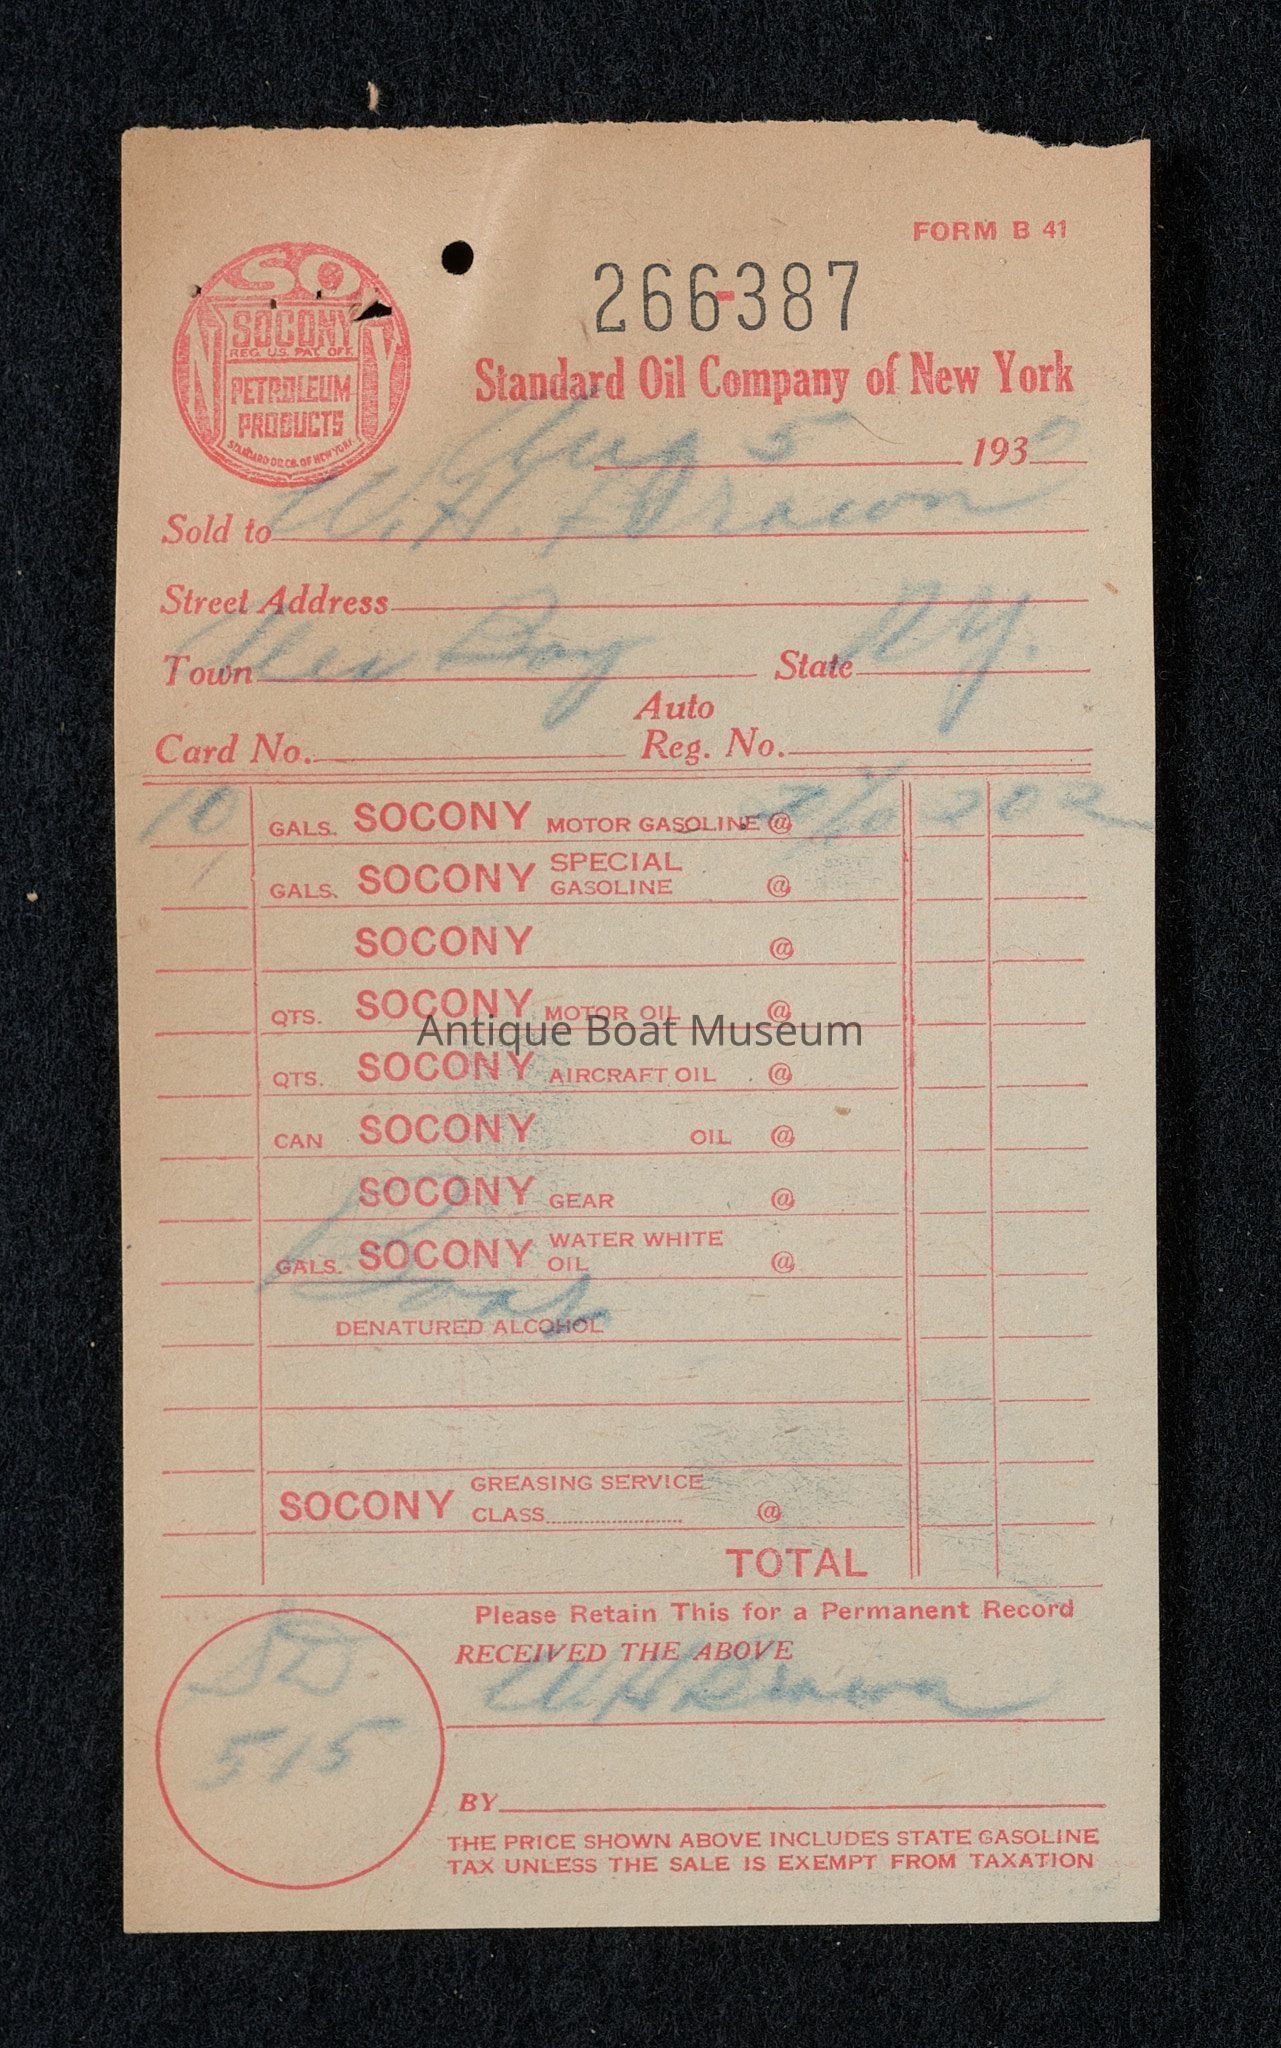 FORM B 41
266-387
SO
SOCONY
REG. U.S. PAT. OFF.
PETROLEUM
PRODUCTS
STANDARD OIL CO. OF NEW YORK
N Y
Standard Oil Company of New York
Aug 5 1930
Sold to W. H. Brown
Street Address
Town Alex Bay State N.Y.
Auto
Card No. Reg. No.
10 GALS. SOCONY MOTOR GASOLINE @ 2 02
GALS. SOCONY SPECIAL GASOLINE @
SOCONY @
QTS. SOCONY MOTOR OIL @
Antique Boat Museum
QTS. SOCONY AIRCRAFT OIL @
CAN SOCONY OIL @
SOCONY GEAR @
GALS. SOCONY WATER WHITE OIL @
Boat
DENATURED ALCOHOL
SOCONY GREASING SERVICE
CLASS @
TOTAL
Please Retain This for a Permanent Record
RECEIVED THE ABOVE
W H Brown
515
BY
THE PRICE SHOWN ABOVE INCLUDES STATE GASOLINE
TAX UNLESS THE SALE IS EXEMPT FROM TAXATION